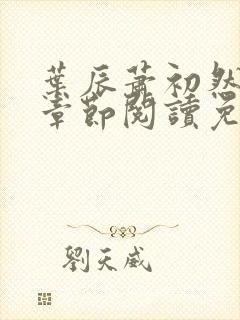 葉辰蕭初然
章節閱讀免
劉天威